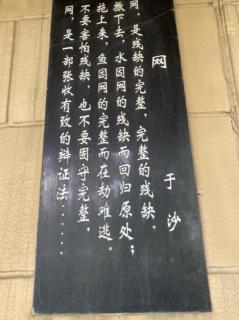 网
于沙
网，是残缺的完整，完整的残缺。
撒下去，水因网的残缺而回归原处；
拖上来，鱼因网的完整而在劫难逃。
不要害怕残缺，也不要固守完整，
网，是一部张收有致的辩证法……